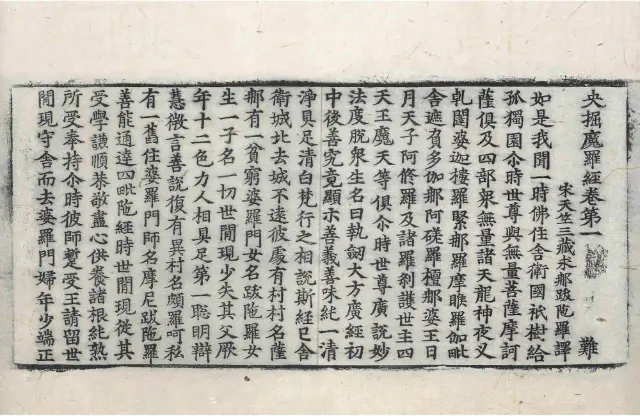 央掘魔羅經卷第一 難
宋天竺三藏求那跋陁羅譯
如是我聞一時佛住舍衛國祇樹給
孤獨園尒時世尊與無量菩薩摩訶
薩俱及四部衆無量諸天龍神夜叉
乹闥婆迦樓羅緊那羅摩睺羅伽毗
舍遮負多伽那阿磋羅檀那婆王日
月天子阿修羅及諸羅剎護世主四
天王魔天等俱尒時世尊廣說妙
法度脫衆生名曰執劔大方廣經初
中後善究竟顯示善義善味純一清
淨具足清白梵行之相說斯經已舍
衛城北去城不遠彼處有村村名薩
那有一貧窮婆羅門女名跋陁羅女
生一子名一切世閒現少失其父厥
年十二色力人相具足第一聰明辯
慧微言善說復有異村名頗羅呵私
有一舊住婆羅門師名摩尼跋陁羅
善能通達四毗陁經時世閒現從其
受學謙順恭敬盡心供養諸根純熟
所受奉持尒時彼師暫受王請留世
閒現守舍而去婆羅門婦年少端正